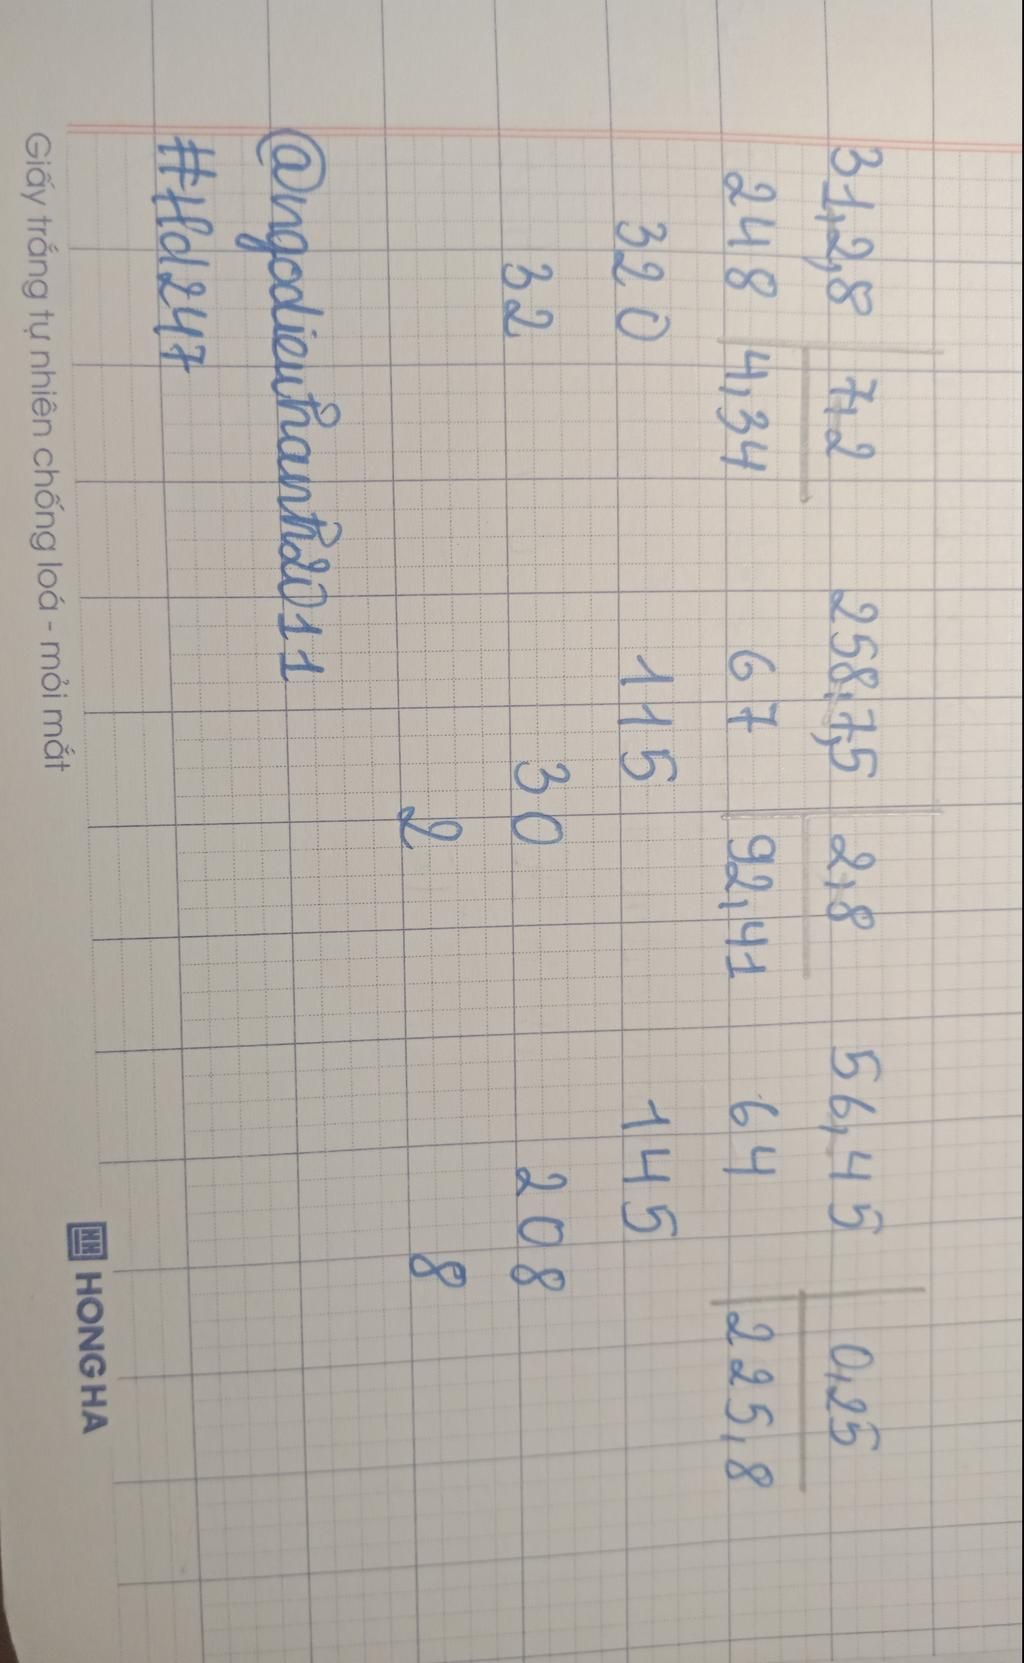 31,2,8 7,2 258,7,5 2,8 56,45 0,25
248 4,34 67 92,41 64 225,8
320 115 145
32 30 208
2 8
@ngodieuhanh2011
#Hd247
Giấy trắng tự nhiên chống loá - mỏi mắt HH HONG HA